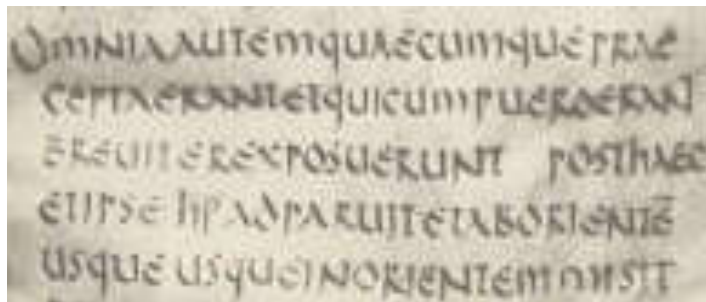 OMNIAAUTEMQUAECUMQUEPRAE
CEPTAERANTETQUICUMPUEROERANT
BREUITEREXPOSUERUNT POSTHAEC
ETIPSE ADPARUITETABORIENTE
USQUE USQUEINORIENTEM MISIT